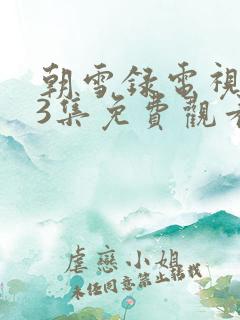 朝雪錄電視
3集免費觀看
虐戀小姐
未經同意禁止轉載